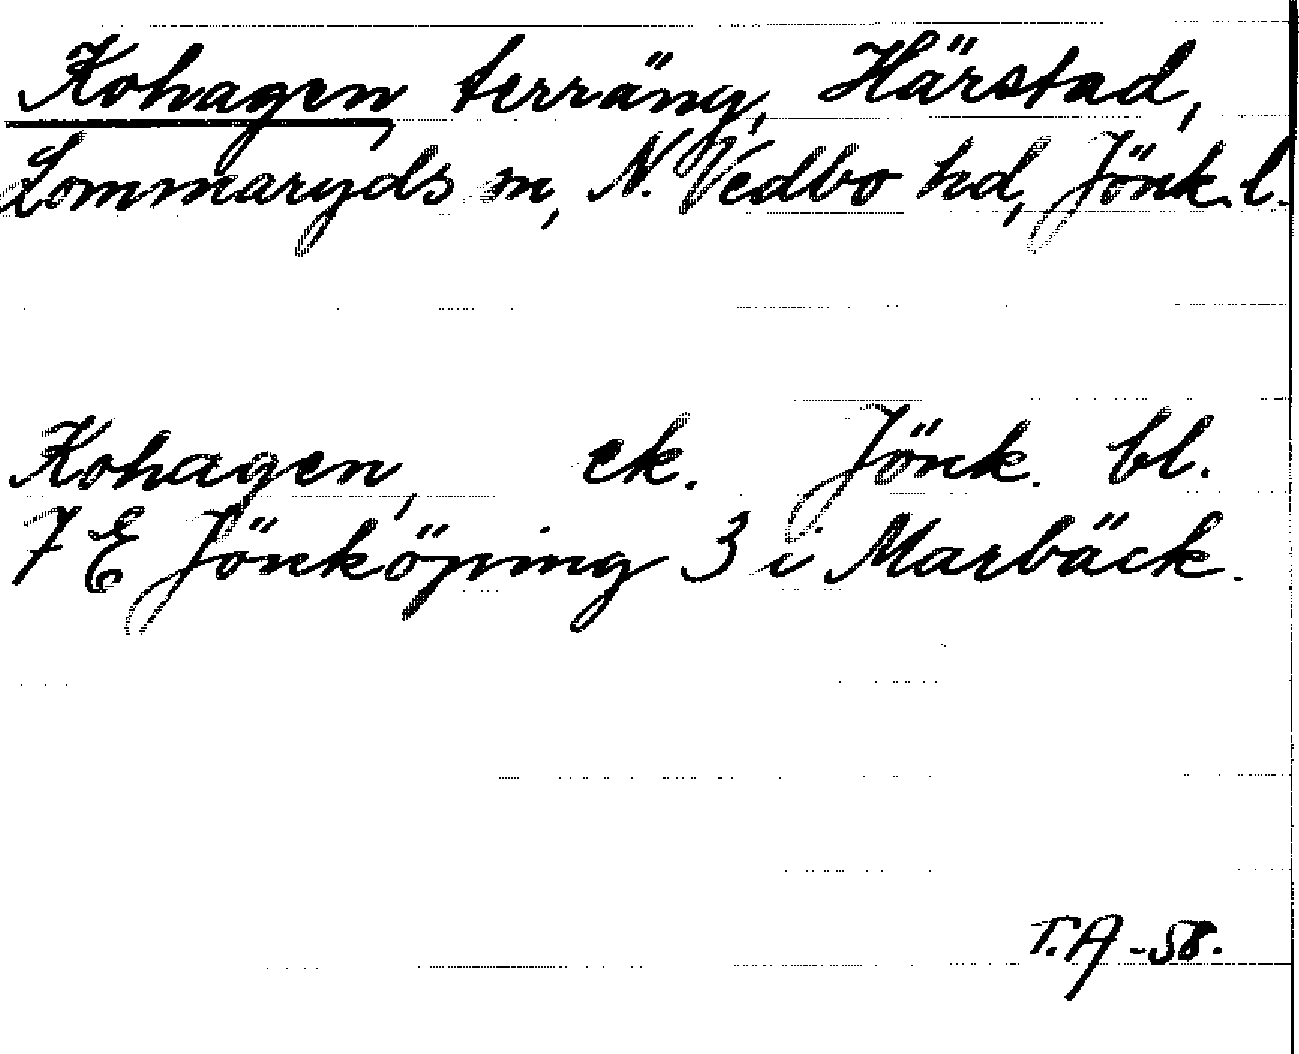 Kohagen, terräng, Härstad,
Lommaryds sn, N. Vedbo hd, Jönk. l.
Kohagen, ek. Jönk. bl.
7 E Jönköping 3 i Marbäck.
T.A -58.